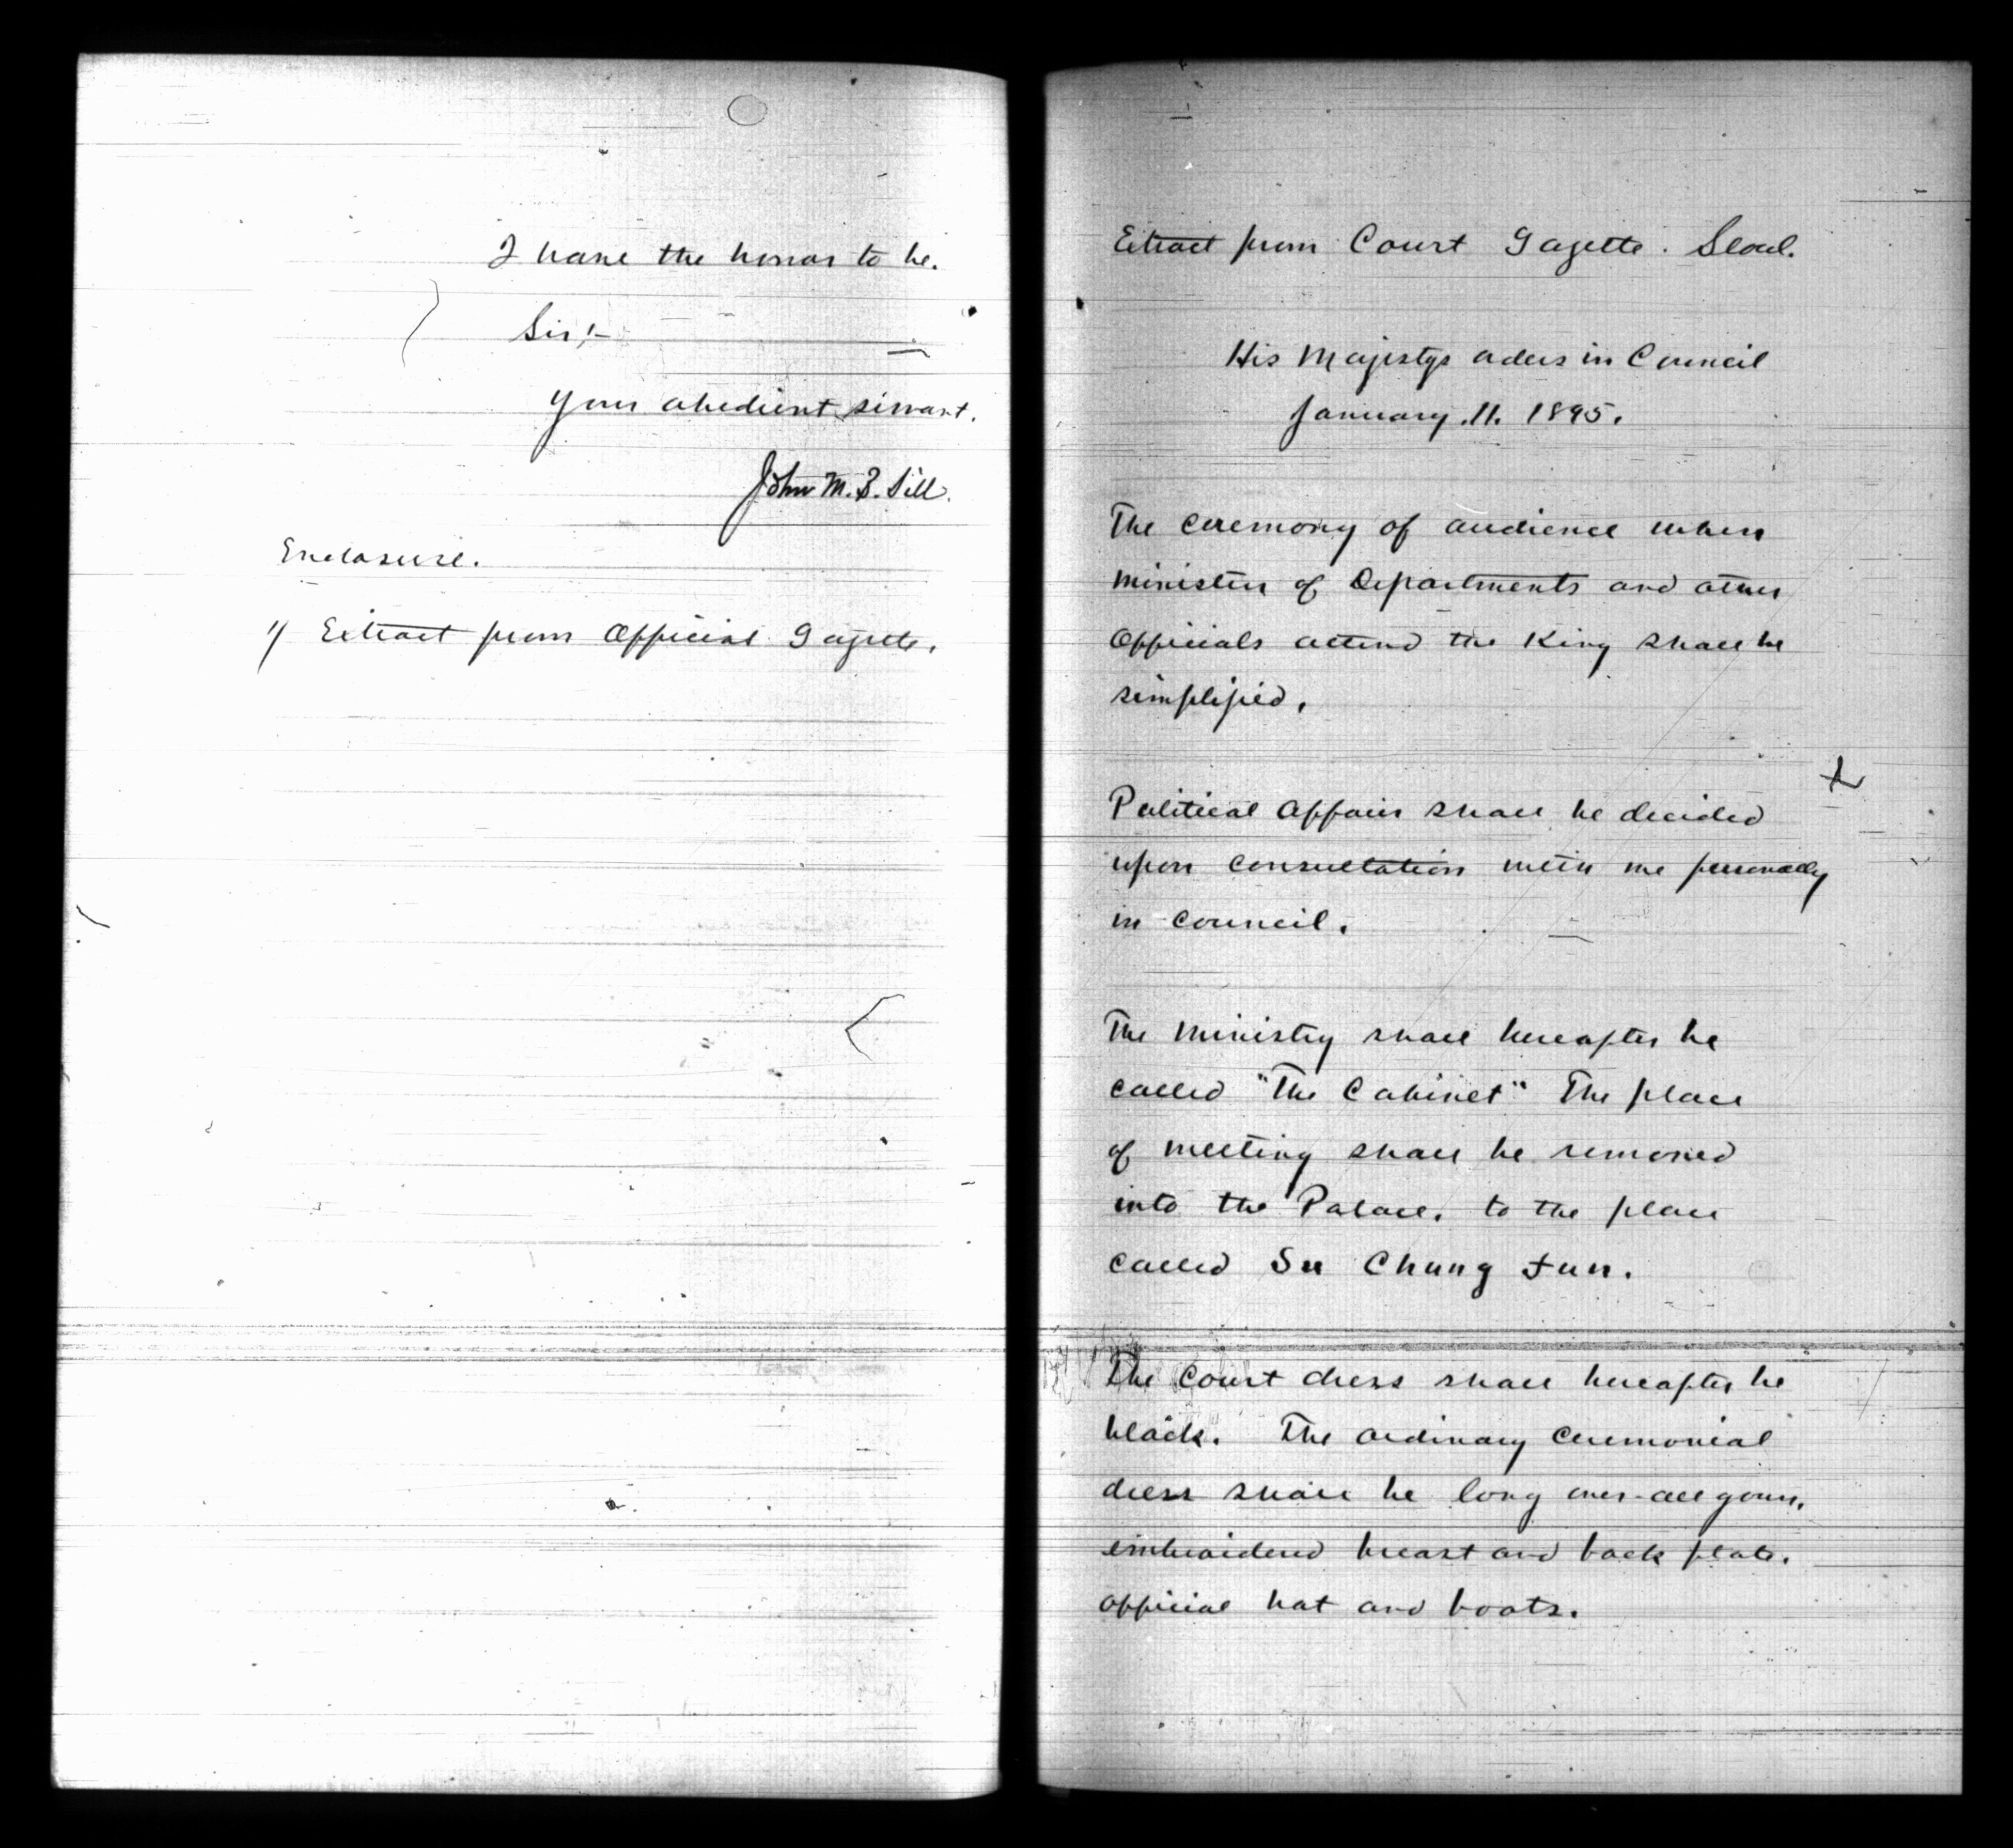 I have the honor to be.
Sir:-
Your obedient servant.
John M. B. Sill.
Enclosure.
1/ Extract from Official Gazette.
Extract from Court Gazette. Seoul.
His Majestys orders in Council
January. 11. 1895.
The ceremony of audience when
Ministers of Departments and other
Officials attend the King shall be
simplified.
Political Affairs shall be decided
upon consultation with me personally
in council.
The Ministry shall hereafter be
called "The Cabinet" The place
of meeting shall be removed
into the Palace. to the place
called Su Chung Jun.
The Court dress shall hereafter be
black. The ordinary ceremonial
dress shall be long over-all gown,
embroidered breast and back plate.
official hat and boots.